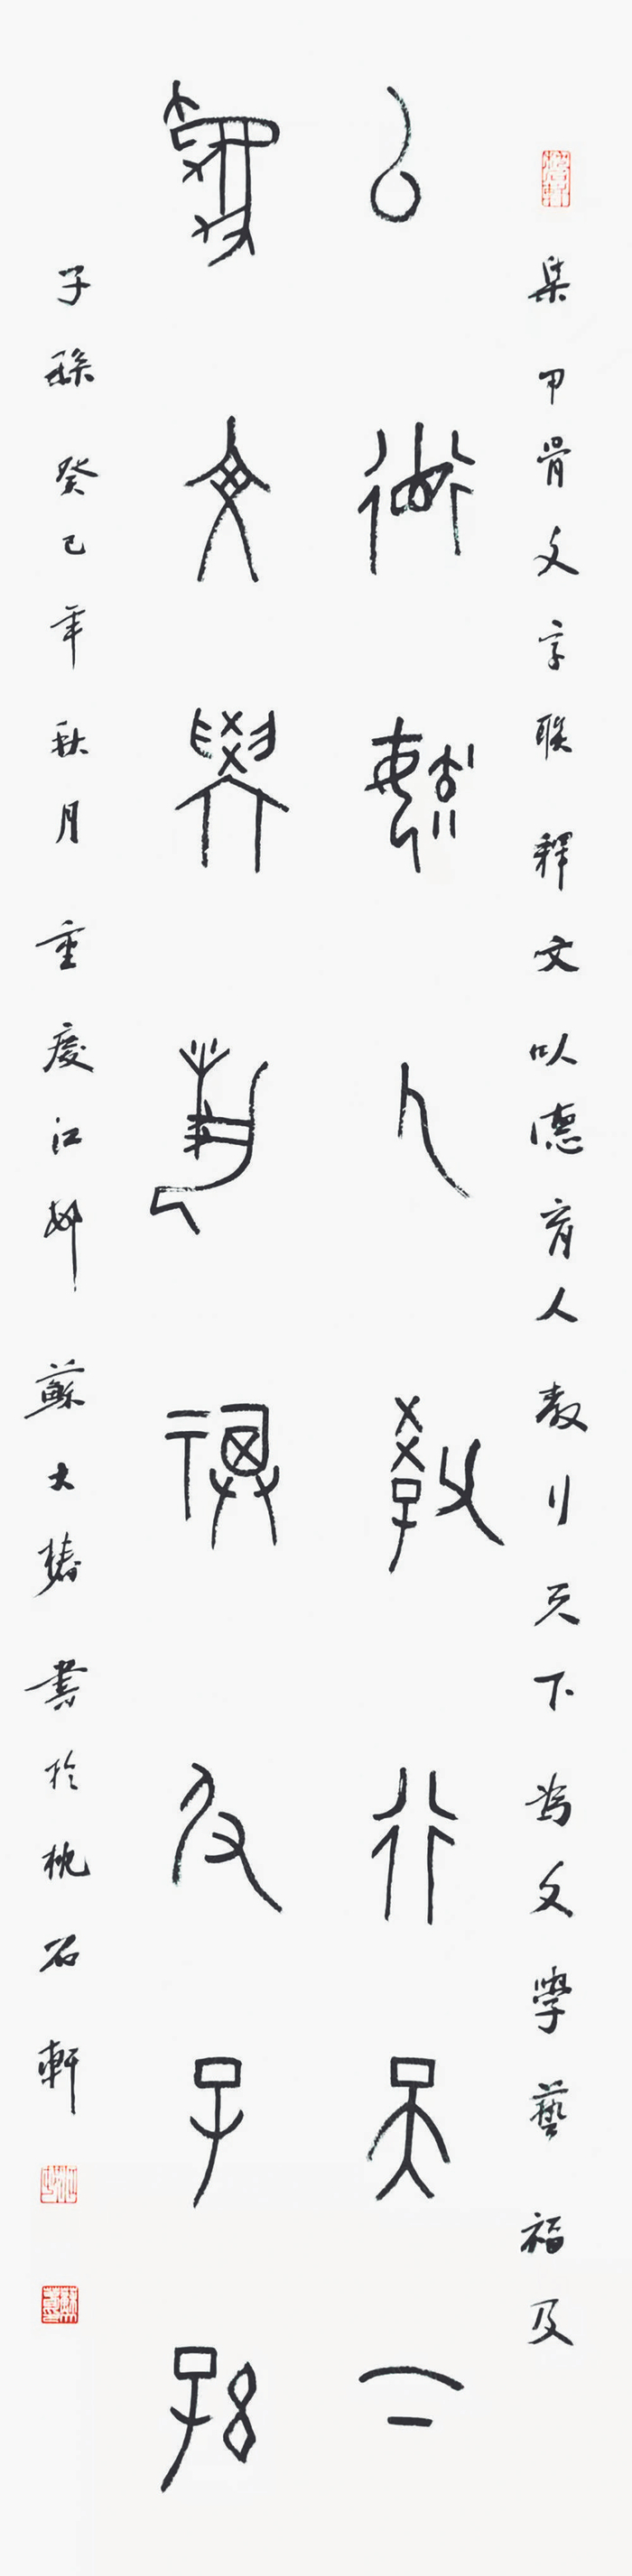 集甲骨文字联释文以德育人教行天下為文學藝福及
以德育人教行天下
為文學藝福及子孫
子孫癸巳年秋月重慶江邨蘇大椿書於枕石軒